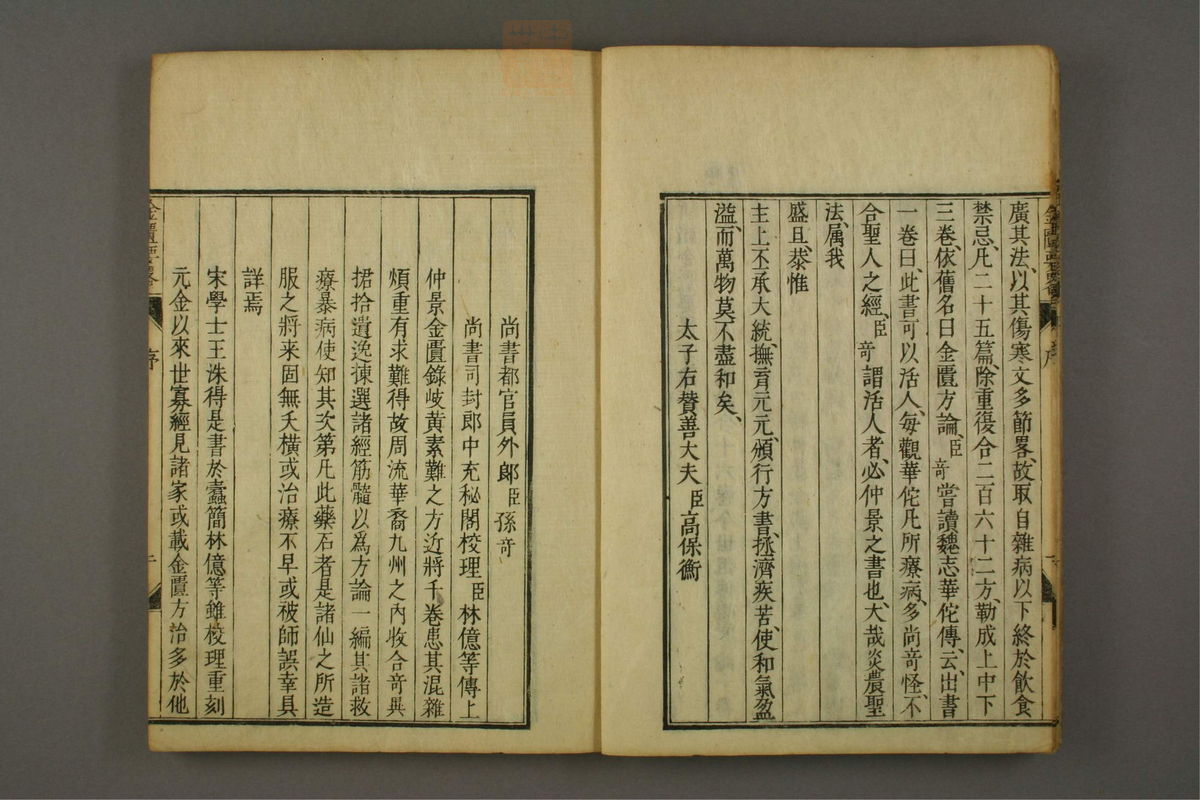 廣其法、以其傷寒文多節畧、故取自雜病以下終於飲食
禁忌、凡二十五篇、除重復合二百六十二方、勒成上中下
三卷、依舊名曰金匱方論、臣奇嘗讀魏志華佗傳、云、出書
一卷曰、此書可以活人、每觀華佗凡所療病、多尚奇怪、不
合聖人之經、臣奇謂活人者、必仲景之書也、大哉炎農聖
法、属我
盛旦、恭惟
主上丕承大統、撫育元元、頒行方書、拯濟疾苦、使和氣盈
溢、而萬物莫、不盡和矣、
太子右賛善大夫臣高保衡
尚書都官員外郎臣孫奇
尚書司封郎中充秘閣校理臣林億等傳上
仲景金匱錄岐黃素難之方近將千卷患其混雜
煩重有求難得故周流華裔九州之內收合奇異
捃拾遺逸揀選諸經筋髓以爲方論一編其諸救
療暴病使知其次第凡此藥石者是諸仙之所造
服之將来固無夭橫或治療不早或被師誤幸具
詳焉
宋學士王洙得是書於蠹簡林億等雖校理重刻
元金以來世寡經見諸家或載金匱方治多於他
金匱要略
序